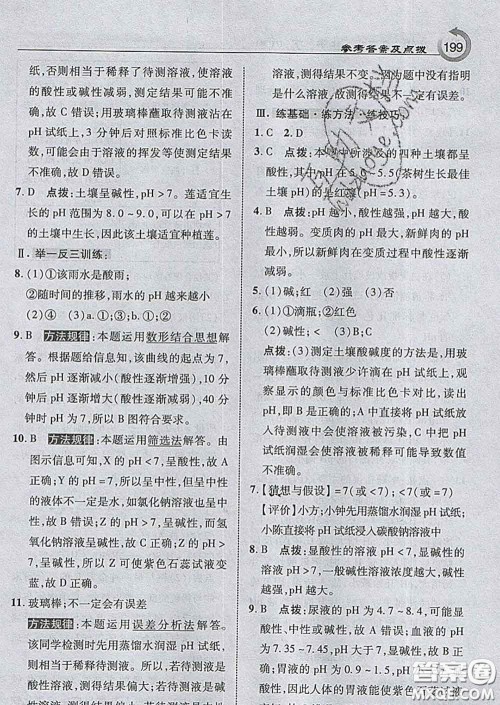 参考答案及点拨 199
纸,否则相当于稀释了待测溶液,使溶液
的酸性或碱性减弱,测定结果可能改
变,故 C 错误;用玻璃棒蘸取待测液沾在
pH 试纸上,3 分钟后对照标准比色卡读
数,可能会由于溶液的挥发等使测定结果
不准确,故 D 错误。
7. D 点拨:土壤呈碱性,pH >7。莲适宜生
长的 pH 范围为 8.0 ~ 9.0,可以大于 7,
呈碱性,因此,该土壤适宜种植莲。
Ⅱ. 举一反三训练:
8. (1)①该雨水是酸雨;
②随时间的推移,雨水的 pH 越来越小
(2)④
9. B 方法规律:本题运用数形结合思想解
答。根据题给信息,该曲线的起点为 7,
然后 pH 逐渐减小(酸性逐渐增强),10 分
钟后 pH 逐渐增大(酸性逐渐减弱),40 分
钟时 pH 为 7,所以 B 图符合要求。
10. B 方法规律:本题运用筛选法解答。由
图示信息可知,X 的 pH <7,呈酸性,故 A
正确;Z 的 pH >7,呈碱性,但是呈碱性
的液体不一定是水,如氯化钠溶液也呈中
性,故 B 错误;Z 的 pH >7,呈碱性,而氢
氧化钠溶液呈碱性,所以可能是氢氧化
钠溶液,故 C 正确;Z 的 pH >7,呈碱性,
所以 Z 可以使紫色石蕊试液变蓝,故 D
正确。
11. 玻璃棒;不一定会有误差
方法规律:本题运用误差分析法解答。
该同学检测时先用蒸馏水润湿 pH 试纸,
则测得结果偏大,若溶液显碱性,
溶液,测得结果不变。因为题中没有指明
是什么溶液,故测得结果不一定有误差。
Ⅲ. 练基础·练方法·练技巧
1. C 2. D
土壤呈酸性(pH =5.3)。
4. B 点拨:pH 越小,酸性越强,pH 越大,酸
性越弱。变质肉的 pH 大于新鲜肉的 pH,
所以新鲜肉在变质过程中酸性逐渐
减小。
5. (1)碱;红 (2)强 (3)否
6. (1)①滴瓶;②红色
(2)①碱性;② < (3)B
点拨:(3)测定土壤酸碱度的方法是:用玻
璃棒蘸取待测液少许滴在 pH 试纸上,观
察显示的颜色与标准比色卡对比读出
数据,所以 B 正确;A 中直接将 pH 试纸放
入待测液中会使溶液被污染,C 中将 pH
试纸润湿会使溶液被稀释可能导致数值
不准确。
7.【猜想与假设】=7(或 <7);<7(或 =7)
【评价】小方:小钟先用蒸馏水润湿 pH 试纸
小陈直接将 pH 试纸浸入碳酸钠溶液中
8. B 点拨:显碱性的溶液 pH >7,且碱性越
强,pH 越大,一般碱性溶液浓度越大,碱
性越强。
9. B 点拨:尿液的 pH 为 4.7 ~ 8.4,可能显
酸性、中性或碱性,故 A 错误;血液的 pH
为 7.35 ~ 7.45,大于 7,显碱性,故 B 正
确;胃液的 pH 为 0.9 ~ 1.5,pH 小于
7,显酸性,胃液能使紫色石蕊试液